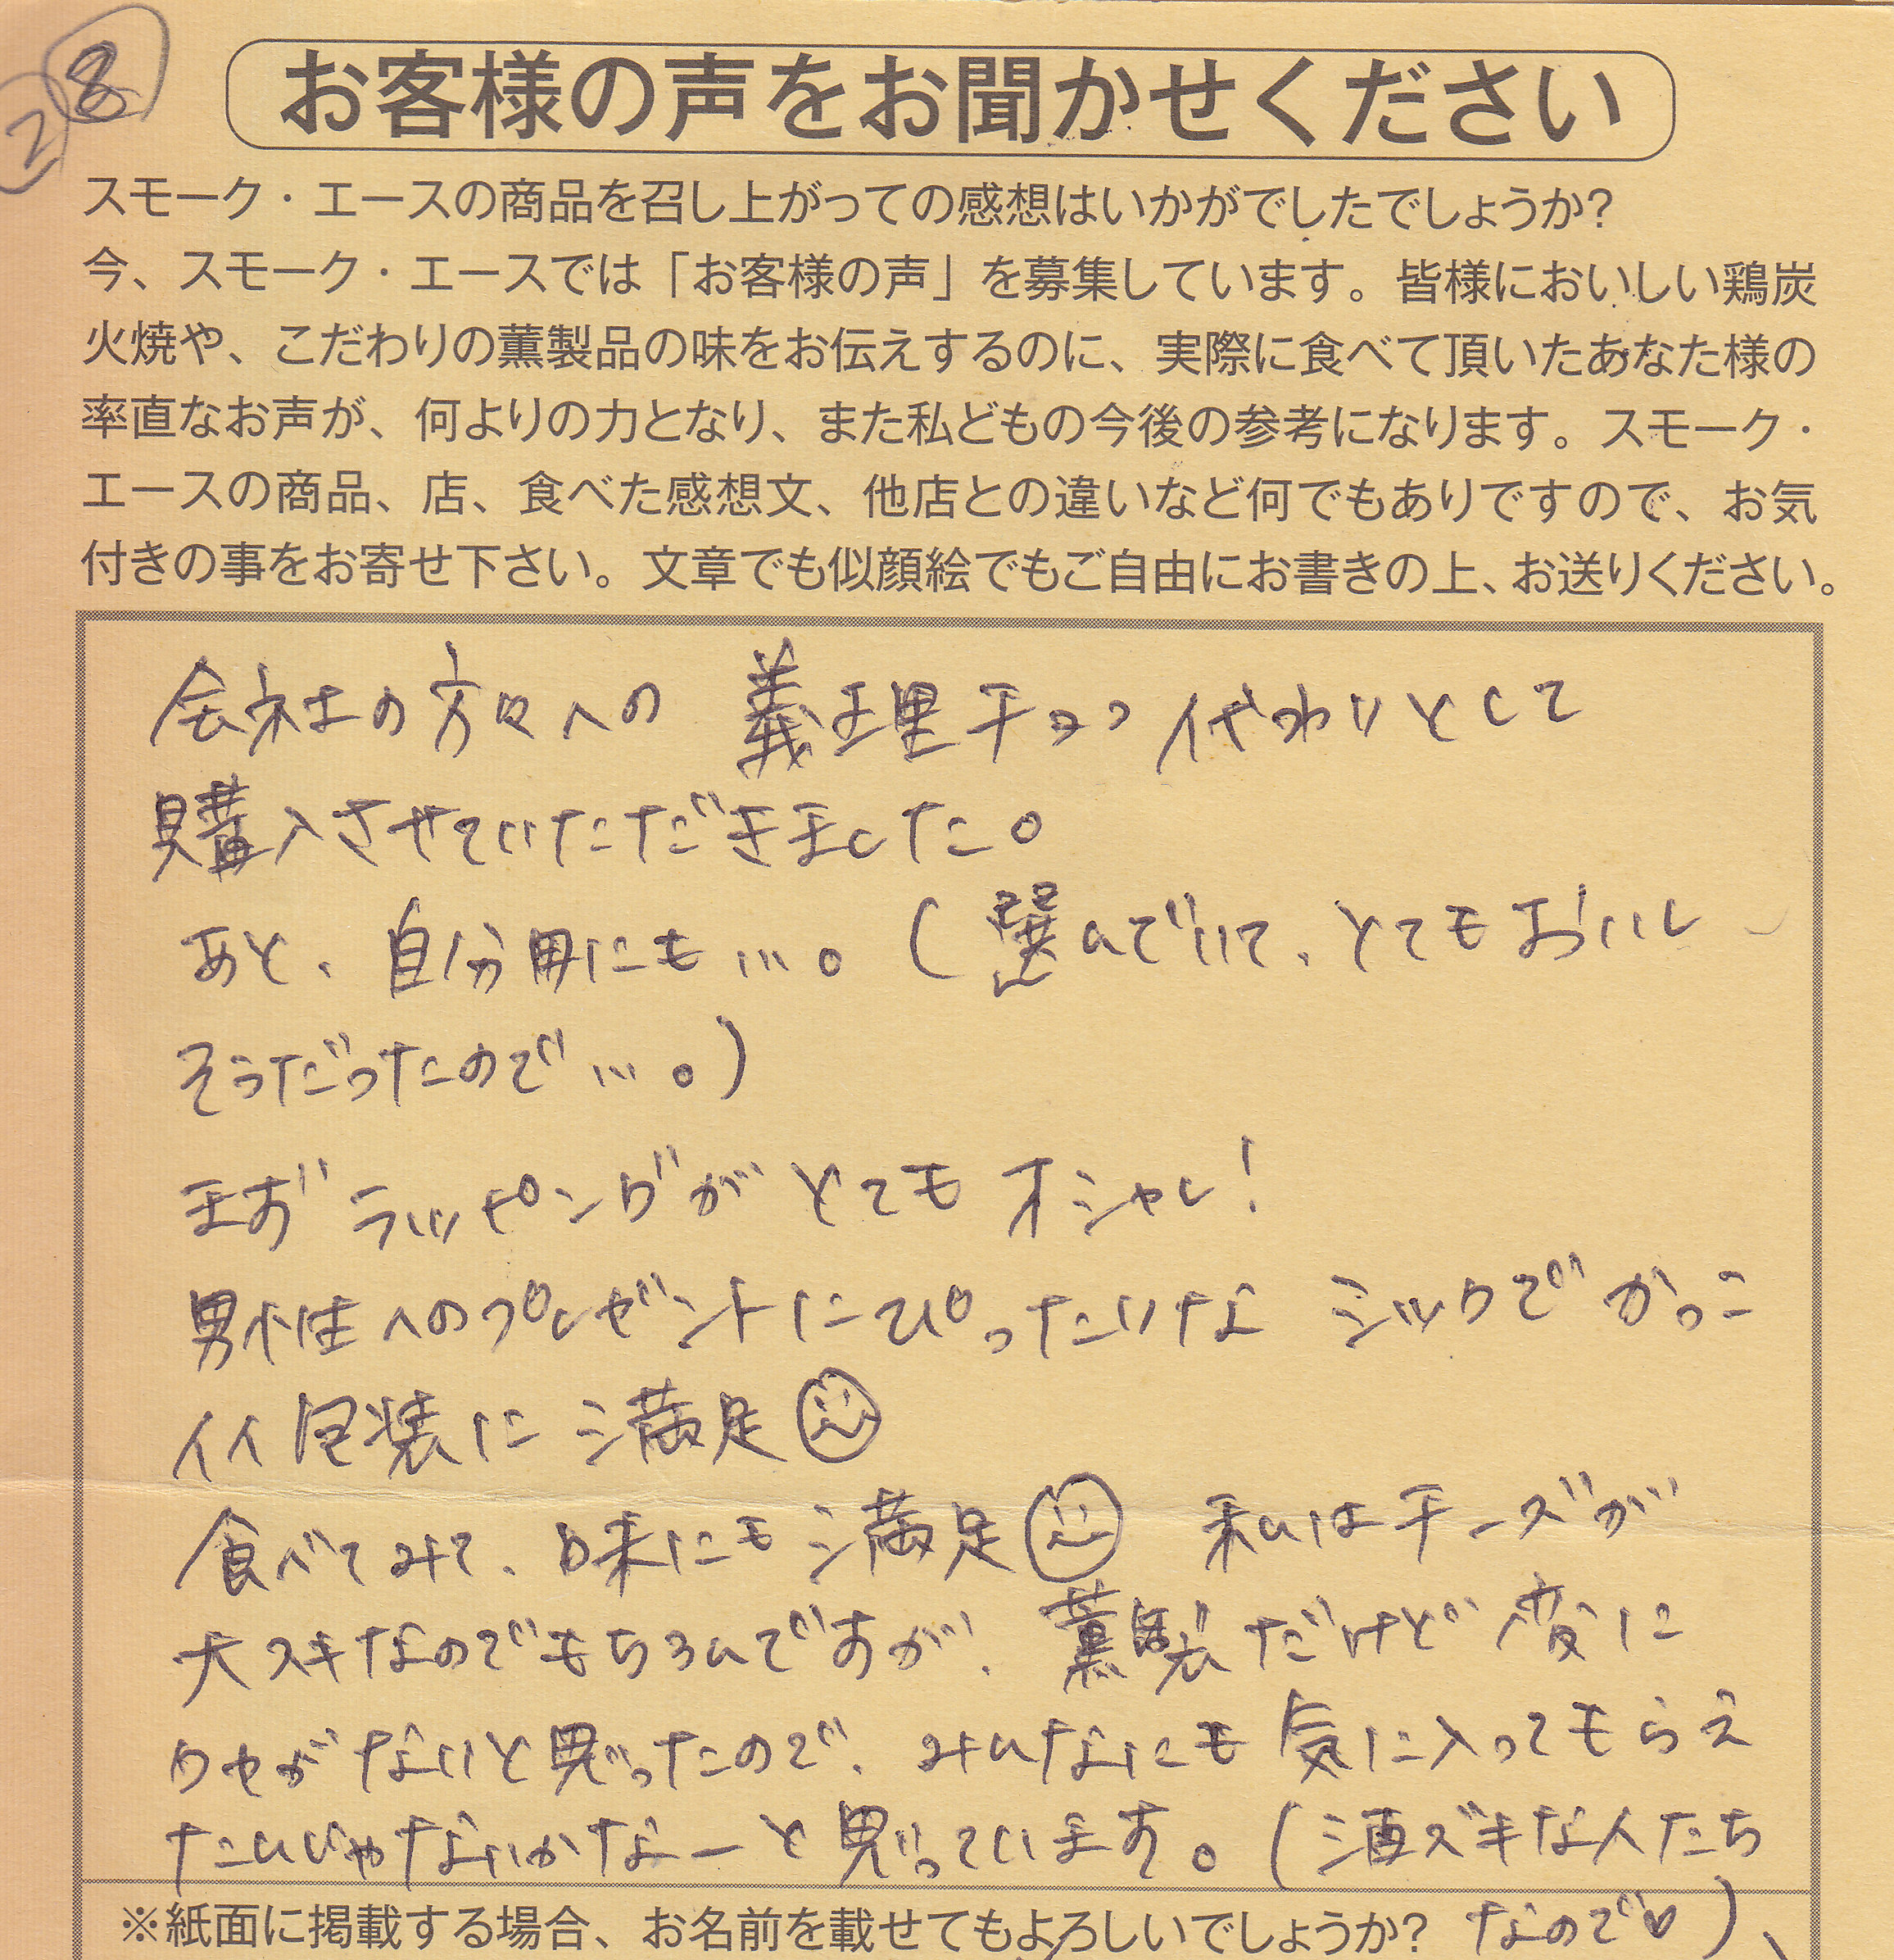 28
お客様の声をお聞かせください
スモーク・エースの商品を召し上がっての感想はいかがでしたでしょうか?
今、スモーク・エースでは「お客様の声」を募集しています。皆様においしい鶏炭
火焼や、こだわりの薫製品の味をお伝えするのに、実際に食べて頂いたあなた様の
率直なお声が、何よりの力となり、また私どもの今後の参考になります。スモーク・
エースの商品、店、食べた感想文、他店との違いなど何でもありですので、お気
付きの事をお寄せ下さい。文章でも似顔絵でもご自由にお書きの上、お送りください。
会社の方々への 義理チョコ代わりとして
購入させていただきました。
あと、自分用にも…。(選んでいて、とてもおいし
そうだったので…。)
まずラッピングがとてもオシャレ!
男性へのプレゼントにぴったりな シックでかっこ
イイ包装に満足☺
食べてみて、味にも満足☺ 私はチーズが
大スキなのでもちろんですが、薫製だけど変に
クセがないと思ったので、みんなにも気に入ってもらえ
たんじゃないかなーと思っています。(酒ズキな人たち
なので♡)、
※紙面に掲載する場合、お名前を載せてもよろしいでしょうか?